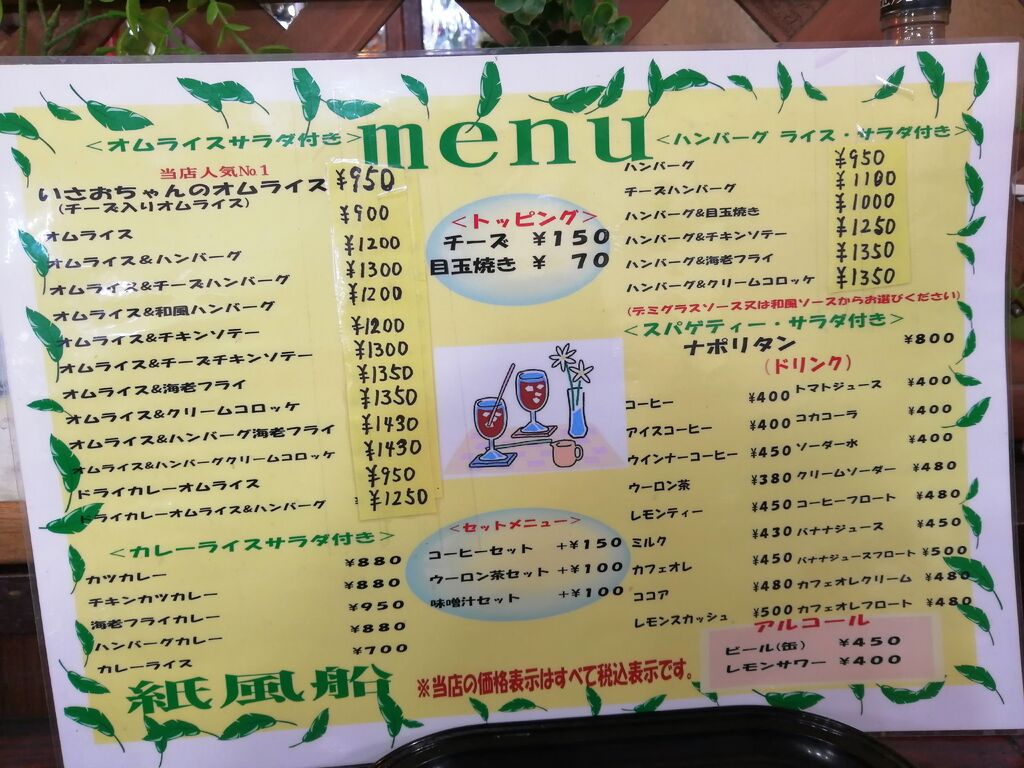 menu
<オムライスサラダ付き>
当店人気No.1
いさおちゃんのオムライス ¥950
(チーズ入りオムライス)
オムライス ¥900
オムライス&ハンバーグ ¥1200
オムライス&チーズハンバーグ ¥1300
オムライス&和風ハンバーグ ¥1200
オムライス&チキンソテー ¥1200
オムライス&チーズチキンソテー ¥1300
オムライス&海老フライ ¥1350
オムライス&クリームコロッケ ¥1350
オムライス&ハンバーグ海老フライ ¥1430
オムライス&ハンバーグクリームコロッケ ¥1430
ドライカレーオムライス ¥950
ドライカレーオムライス&ハンバーグ ¥1250
<カレーライスサラダ付き>
カツカレー ¥880
チキンカツカレー ¥880
海老フライカレー ¥950
ハンバーグカレー ¥880
カレーライス ¥700
紙風船
<トッピング>
チーズ ¥150
目玉焼き ¥ 70
<セットメニュー>
コーヒーセット +¥150
ウーロン茶セット +¥100
味噌汁セット +¥100
<ハンバーグ ライス・サラダ付き>
ハンバーグ ¥950
チーズハンバーグ ¥1100
ハンバーグ&目玉焼き ¥1000
ハンバーグ&チキンソテー ¥1250
ハンバーグ&海老フライ ¥1350
ハンバーグ&クリームコロッケ ¥1350
(デミグラスソース又は和風ソースからお選びください)
<スパゲティー・サラダ付き>
ナポリタン ¥800
(ドリンク)
コーヒー ¥400 トマトジュース ¥400
アイスコーヒー ¥400 コカコーラ ¥400
ウインナーコーヒー ¥450 ソーダー水 ¥400
ウーロン茶 ¥380 クリームソーダー ¥480
レモンティー ¥450 コーヒーフロート ¥480
ミルク ¥430 バナナジュース ¥450
カフェオレ ¥450 バナナジュースフロート ¥500
ココア ¥480 カフェオレクリーム ¥480
レモンスカッシュ ¥500 カフェオレフロート ¥480
アルコール
ビール(缶) ¥450
レモンサワー ¥400
※当店の価格表示はすべて税込表示です。